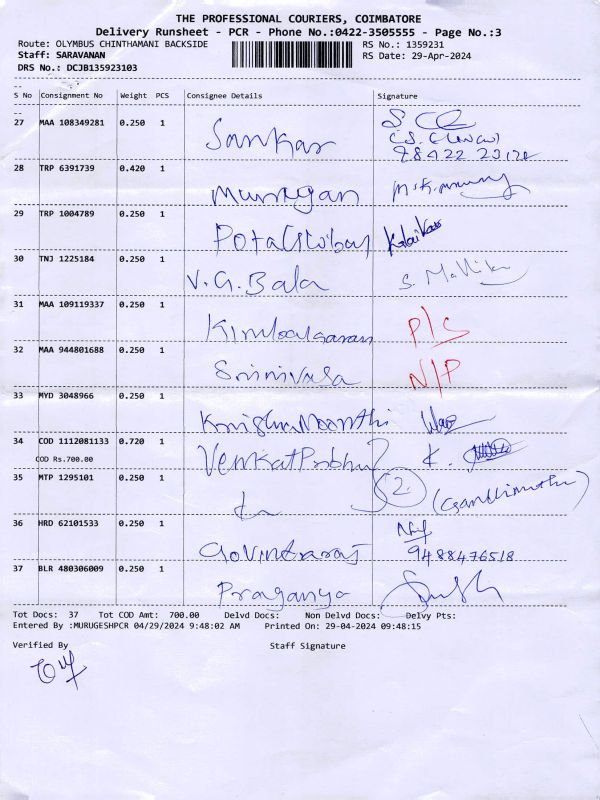 THE PROFESSIONAL COURIERS, COIMBATORE
Delivery Runsheet - PCR - Phone No.:0422-3505555 - Page No.:3
Route: OLYMBUS CHINTHAMANI BACKSIDE RS No.: 1359231
Staff: SARAVANAN RS Date: 29-Apr-2024
DRS No.: DCJB135923103
S No Consignment No Weight PCS Consignee Details Signature
27 MAA 108349281 0.250 1 Sankar
28 TRP 6391739 0.420 1 Murugan
29 TRP 1004789 0.250 1
30 TNJ 1225184 0.250 1 V.G. Bala S. Mallika
31 MAA 109119337 0.250 1 P/S
32 MAA 944801688 0.250 1 Srinivasa N/P
33 MYD 3048966 0.250 1
34 COD 1112081133 0.720 1 VenkatPrabhu K.
COD Rs.700.00
35 MTP 1295101 0.250 1 2.
36 HRD 62101533 0.250 1 Govindaraj
9488476518
37 BLR 480306009 0.250 1 Praganya
Tot Docs: 37 Tot COD Amt: 700.00 Delvd Docs: Non Delvd Docs: Delvy Pts:
Entered By :MURUGESHPCR 04/29/2024 9:48:02 AM Printed On: 29-04-2024 09:48:15
Verified By Staff Signature